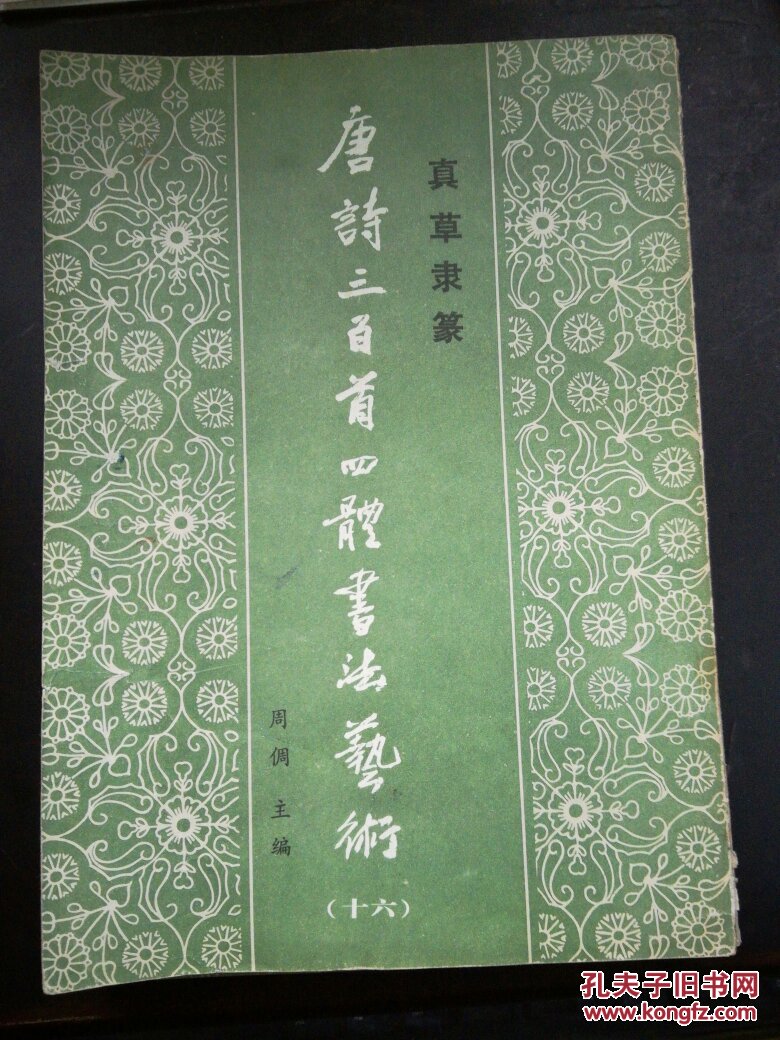 真草隶篆
唐詩三百首四體書法藝術
(十六)
周倜 主编
孔夫子旧书网
www.kongfz.com